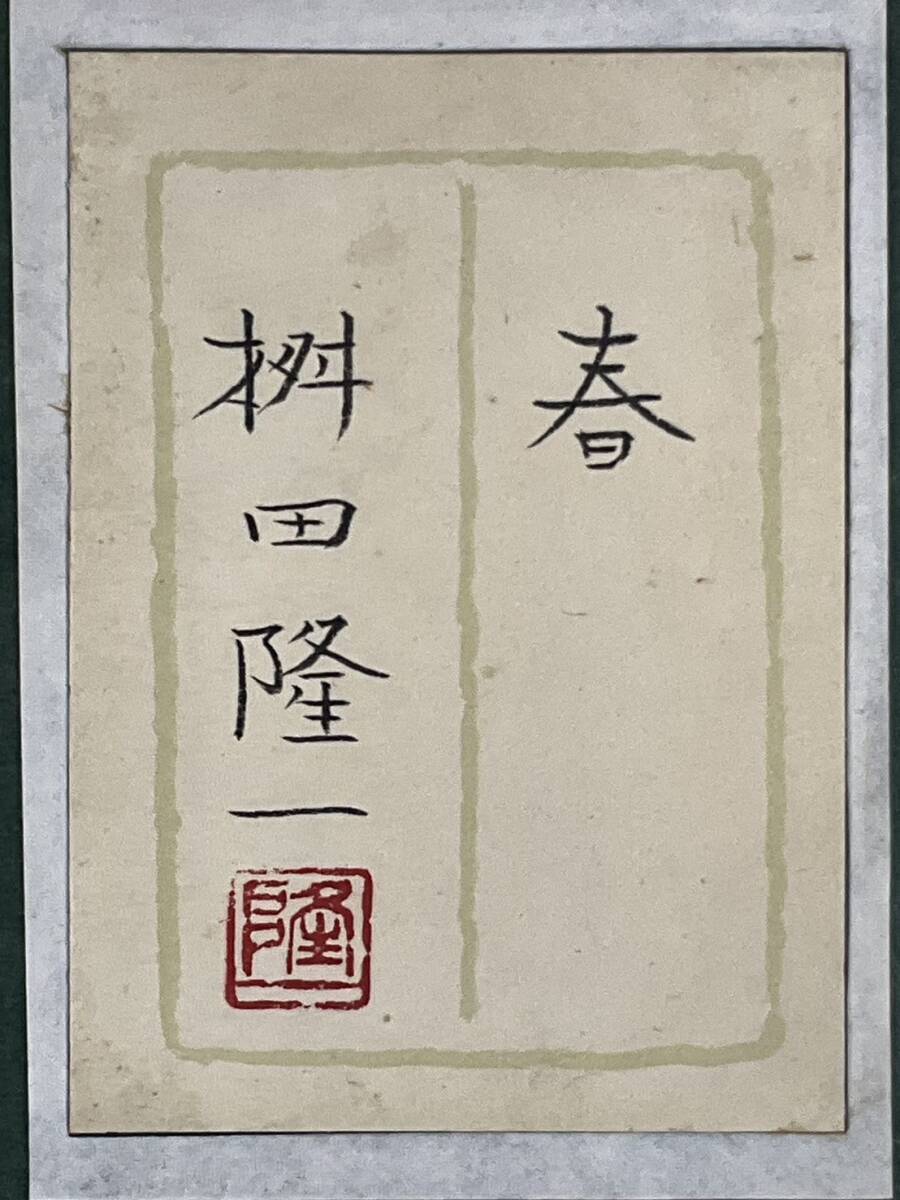 春
桝田隆一
隆一